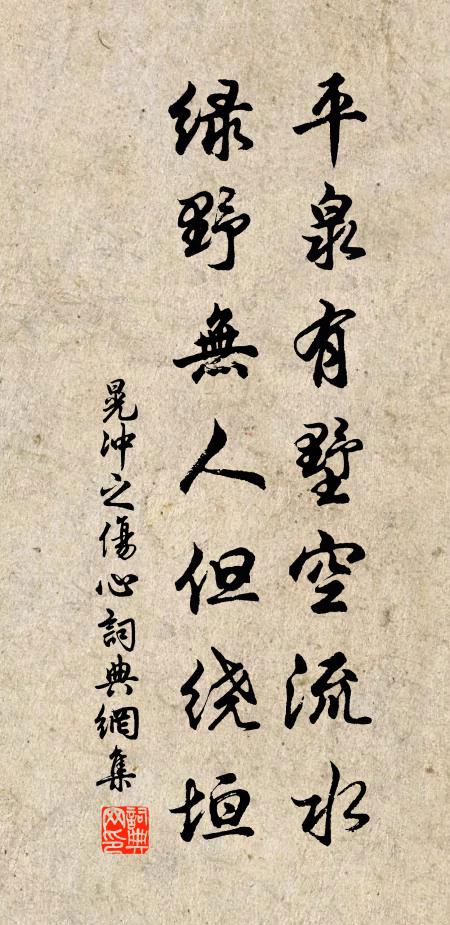 平泉有墅空流水
绿野無人但绕垣
晁冲之傷心詞典網集
詞典網印